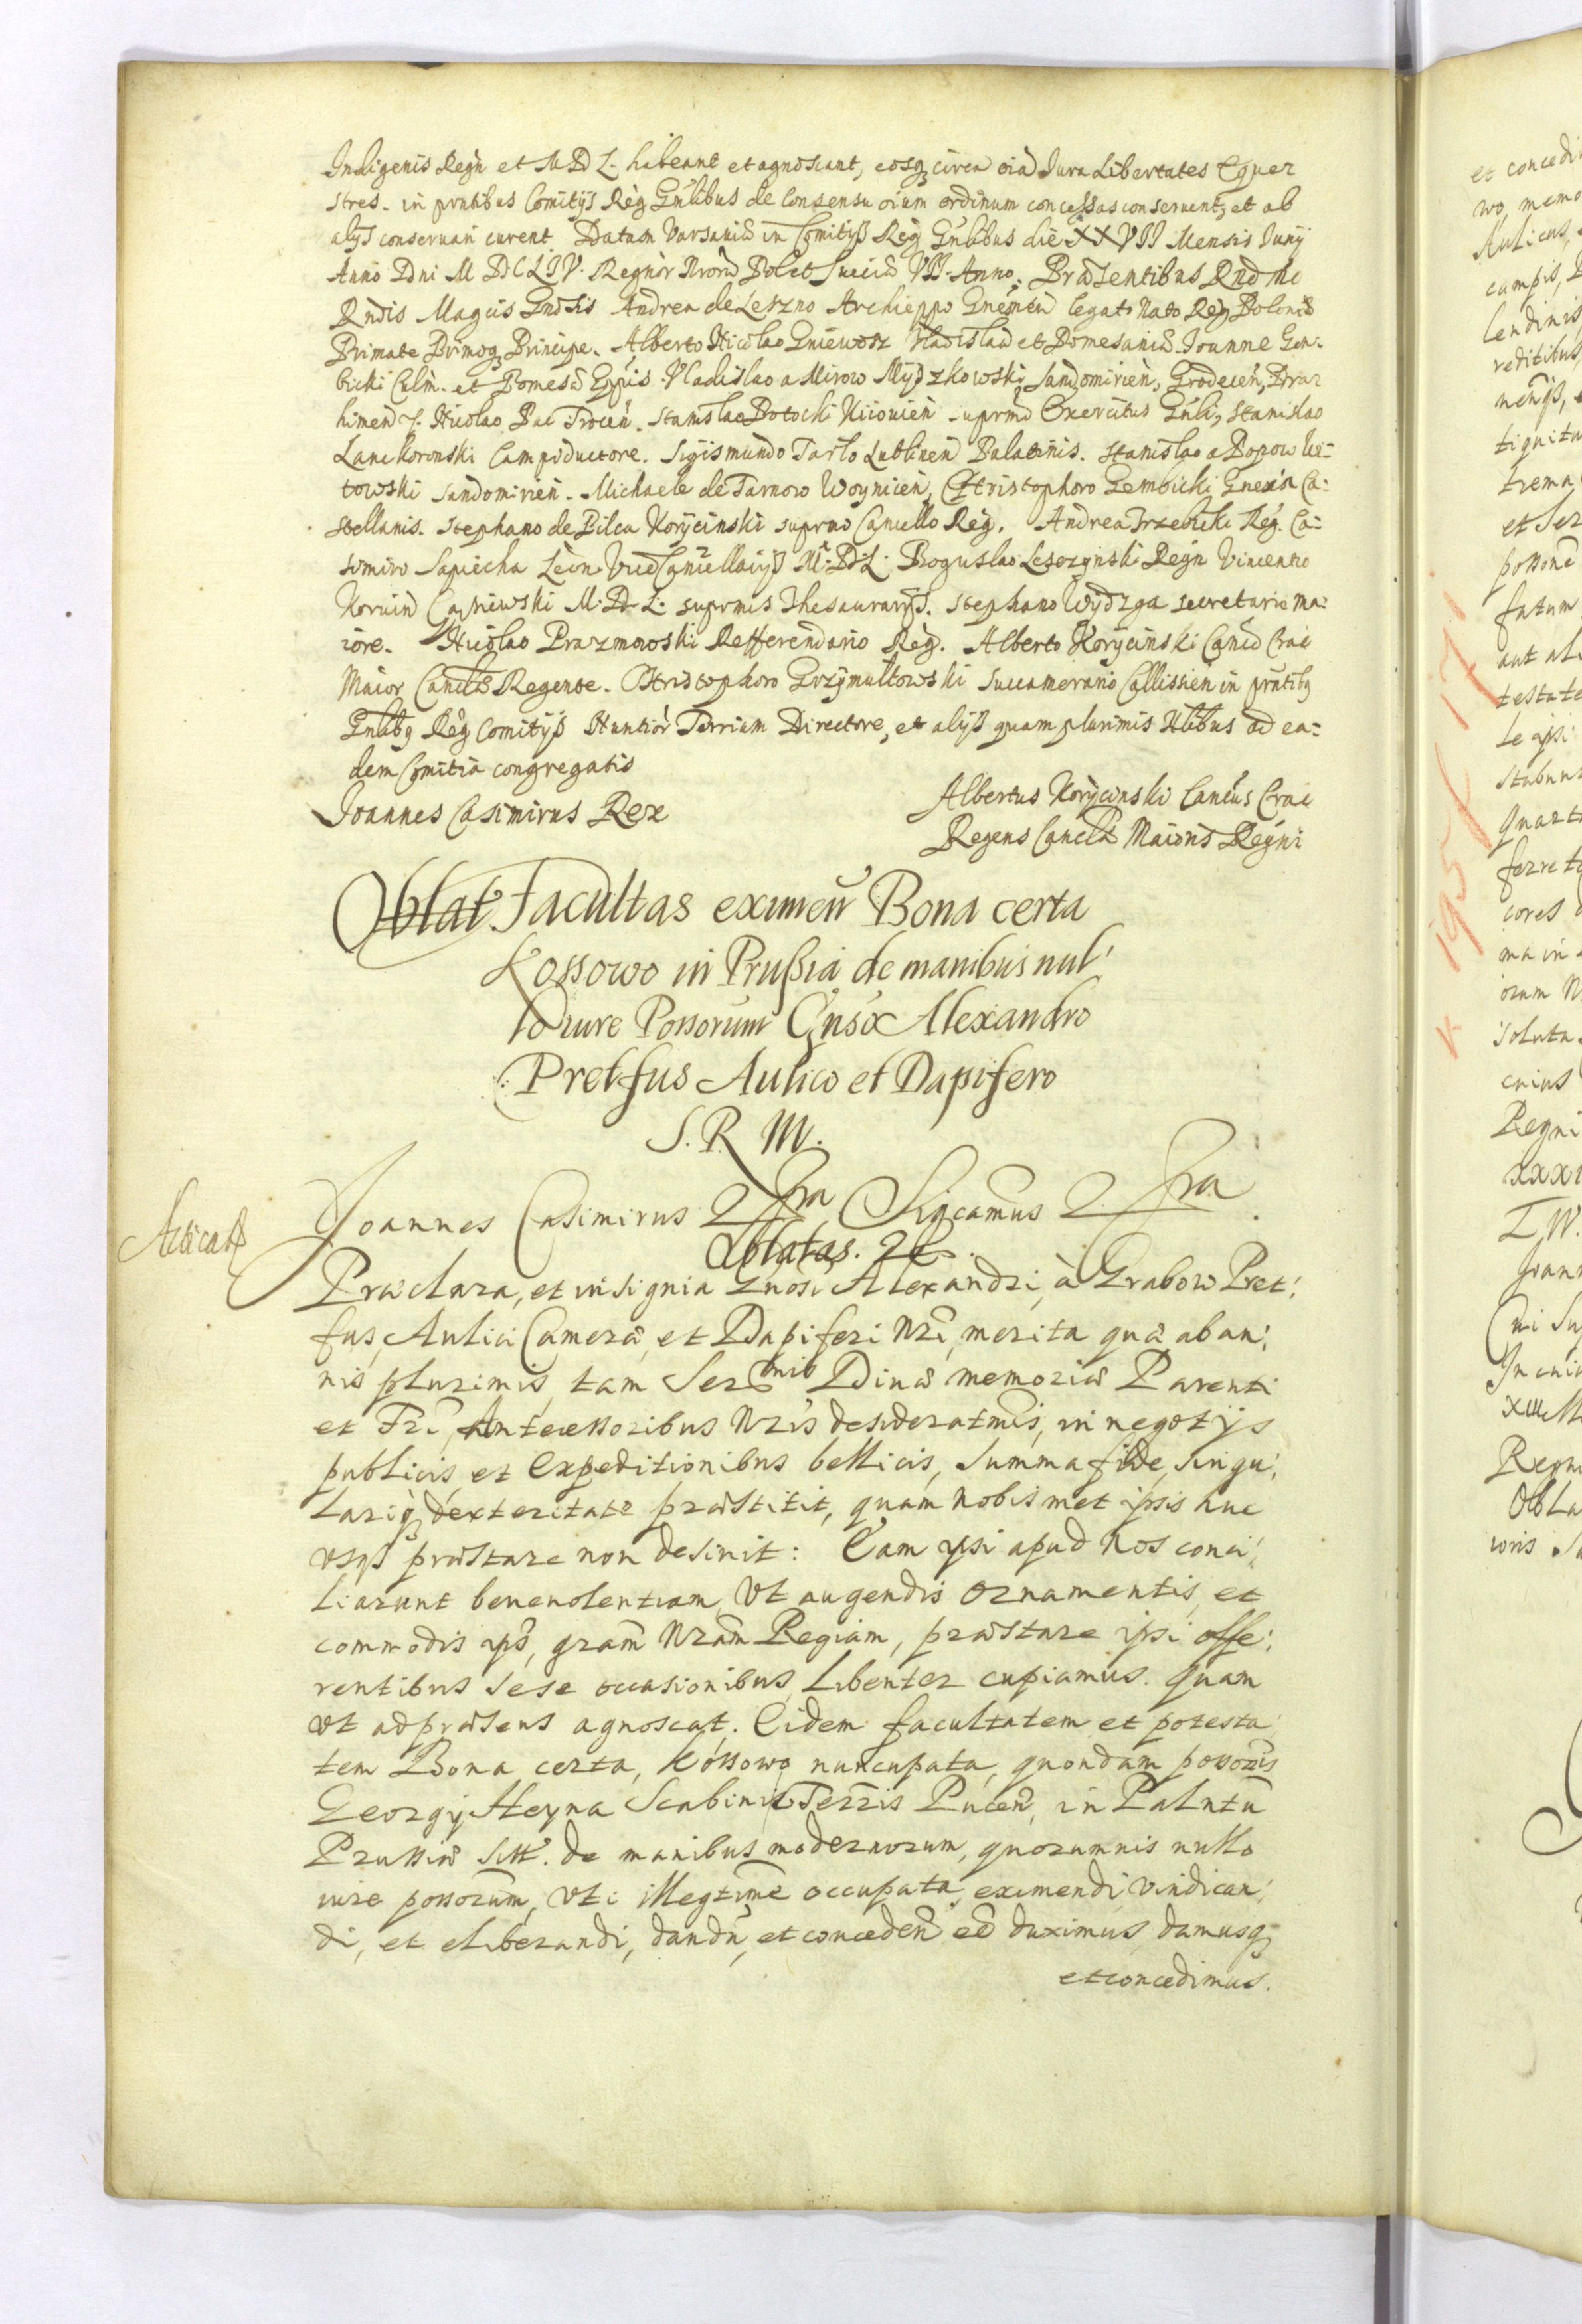 Indigenis Regn̄ et M D L. habeant et agnoscant, eosq3 circa oīa Jura Libertates Eques
stres. in pn̄tibus Comitijs Reḡ Gn̄libus de Consensu oīum ordinum concessas conseruent, et ab
alijs conseruari curent Datum Varsauiæ in Comitijs Reḡ Gn̄libus die XXVII Mensis Junij
Anno Dni M DCLIV. Regnor̄ Nrorū Pol et Sueciæ VII. Anno. Præsentibus Rnd mo
Rndis Mag̃cis Gn̄osis Andrea de Leszno Archieppo Gnesnen̄ Legato Nato Reg Poloniæ
Primate Primoq3 Principe. Alberto Nicolao Gniewosz Vladislaū et Pomesaniæ. Joanne Gem-
bicki Culm̄. et Pomesæ Eppis. Vladislao a Mirow Myszkowski Sandomirien̄, Grodecen̄,
Nicolao Pac Trocen̄. Stanislao Potocki Kiiouien̄ supremo Exercitus Gn̄li, Stanislao
Lanckoronski Campiductore. Sigismundo Tarło Lublinen̄ Palatinis. Stanislao a Popow Wi-
towski Sandomirien̄. Michaele de Tarnow Woynicien̄, Christophoro Gembicki Gnesn̄ Ca:
stellanis. Stephano de Pilca Korycinski supremo Cancello Reḡ. Andrea Trzebicki Reḡ. Ca-
simiro Sapiecha Leon. Vice Cancellarijs M: D: L: Boguslao Leszczynski Regn̄ Vincentio
Koruin Gąsiewski M: D: L: supremis Thesaurarijs. Stephano Wydzga secretario ma:
iore. Nicolao Prazmowski Refferendario Reḡ. Alberto Korycinski Canco Crac
Maior Cancellæ Regente. Christophoro Grzymułtowski Succamerario Callissien̄ in pn̄tibq
Gn̄libq Reḡ Comitijs Nuntior̄ Terrium Directore, et alijs quam plurimis Nlibus ad ea:
dem Comitia congregatis
Joannes Casimirus Rex
Albertus Korycinski Cancus Crac
Regens Cancellæ Maioris Regni
Oblat. Facultas eximen̄ Bona certa
Kossowo in Prussia de manibus nul:
lo iure Possorum Gnso Alexandro
Pretfus Aulico et Dapifero
S. R M.
Acticat
Joannes Casimirus 2 fra Sigcamus 2 fra.
Oblatas. 2 fr.
Præclara, et insignia Gnosi Alexandri, à Grabow Pret:
fus, Aulici Cameræ, et Dapiferi Nri, merita quæ ab an:
nis plurimis, tam Sermis Diuæ memoriæ Parenti
et Fri, Antecessoribus Nris desideratmis, in negotijs
publicis et Expeditionibus bellicis, summa fide, singu:
lariq3 dexteritate præstitit, quam nobismet ipsis huc
vsq3 præstare non desinit: Eam ipsi apud Nos conci:
liarunt beneuolentiam, Vt augendis ornamentis, et
commodis ips, gram Nram Regiam, præstare ipsi offe:
rentibus sese occasionibus, libenter cupiamus. quam
vt ad præsens agnoscat. Eidem facultatem et potesta
tem Bona certa, Kossowo nuncupata, quondam possoris
Georgij Heyna Scabini Terris Pucen̄, in Palntu
Prussiæ sitt. de manibus modernorum, quorumuis nullo
iure possorum, vti illegtime occupata, eximendi, vindican:
di, et eliberandi, dandn̄, et conceden̄ eē duximus, damusq3
et concedimus.